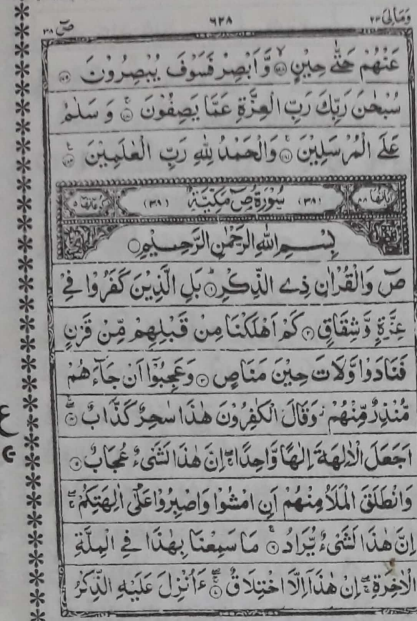 وَمَالِیَ ٢٣ ٦٢٨ صٓ ٣٨
عَنْهُمْ حَتّٰى حِيْنٍ ۙ﴿١٧٨﴾ وَّاَبْصِرْ فَسَوْفَ يُبْصِرُوْنَ ﴿١٧٩﴾
سُبْحٰنَ رَبِّكَ رَبِّ الْعِزَّةِ عَمَّا يَصِفُوْنَ ۚ﴿١٨٠﴾ وَ سَلٰمٌ
عَلَى الْمُرْسَلِيْنَ ۚ﴿١٨١﴾ وَالْحَمْدُ لِلّٰهِ رَبِّ الْعٰلَمِيْنَ ﴿١٨٢﴾
سُوْرَةُ صٓ مَكِّيَّةٌ
بِسْمِ اللّٰهِ الرَّحْمٰنِ الرَّحِيْمِ
صٓ وَالْقُرْاٰنِ ذِى الذِّكْرِ ؕ﴿١﴾ بَلِ الَّذِيْنَ كَفَرُوْا فِىْ
عِزَّةٍ وَّشِقَاقٍ ﴿٢﴾ كَمْ اَهْلَكْنَا مِنْ قَبْلِهِمْ مِّنْ قَرْنٍ
فَنَادَوْا وَّلَاتَ حِيْنَ مَنَاصٍ ﴿٣﴾ وَعَجِبُوْۤا اَنْ جَآءَهُمْ
مُّنْذِرٌ مِّنْهُمْ ۫ وَقَالَ الْكٰفِرُوْنَ هٰذَا سٰحِرٌ كَذَّابٌ ﴿٤﴾
اَجَعَلَ الْاٰلِهَةَ اِلٰهًا وَّاحِدًا ۖۚ اِنَّ هٰذَا لَشَىْءٌ عُجَابٌ ﴿٥﴾
وَانْطَلَقَ الْمَلَاُ مِنْهُمْ اَنِ امْشُوْا وَاصْبِرُوْا عَلٰٓى اٰلِهَتِكُمْ ۖۚ
اِنَّ هٰذَا لَشَىْءٌ يُّرَادُ ۚ﴿٦﴾ مَا سَمِعْنَا بِهٰذَا فِى الْمِلَّةِ
الْاٰخِرَةِ ۖۚ اِنْ هٰذَاۤ اِلَّا اخْتِلَاقٌ ۚ﴿٧﴾ ءَاُنْزِلَ عَلَيْهِ الذِّكْرُ